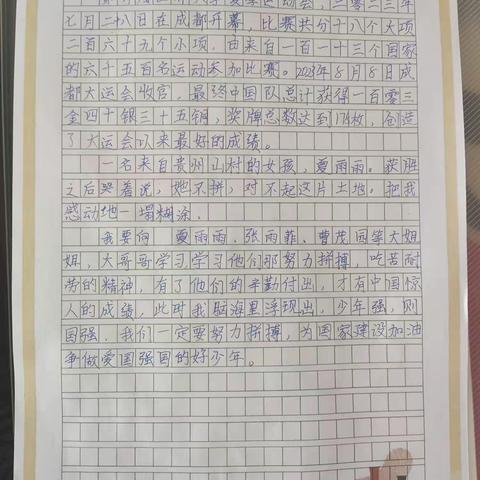 运动会,二零二三年
七月二十八日在成都开幕,比赛共分十八个大项
二百六十九个小项,由来自一百一十三个国家
的六千五百名运动参加比赛。2023年8月8日成
都大运会收官,最终中国队总计获得一百零三
金四十银三十五铜,奖牌总数达到178枚,创造
了大运会以来最好的成绩。
一名来自贵州山村的女孩,夏雨雨。获胜
之后哭着说,她不拼,对不起这片土地。把我
感动地一塌糊涂.
我要向 夏雨雨、张雨菲、曹茂园等大姐
姐,大哥哥学习,学习他们那努力拼搏,吃苦耐
劳的精神,有了他们的辛勤付出,才有中国惊
人的成绩,此时我脑海里浮现出,少年强,则
国强,我们一定要努力拼搏,为国家建设加油
争做爱国强国的好少年。